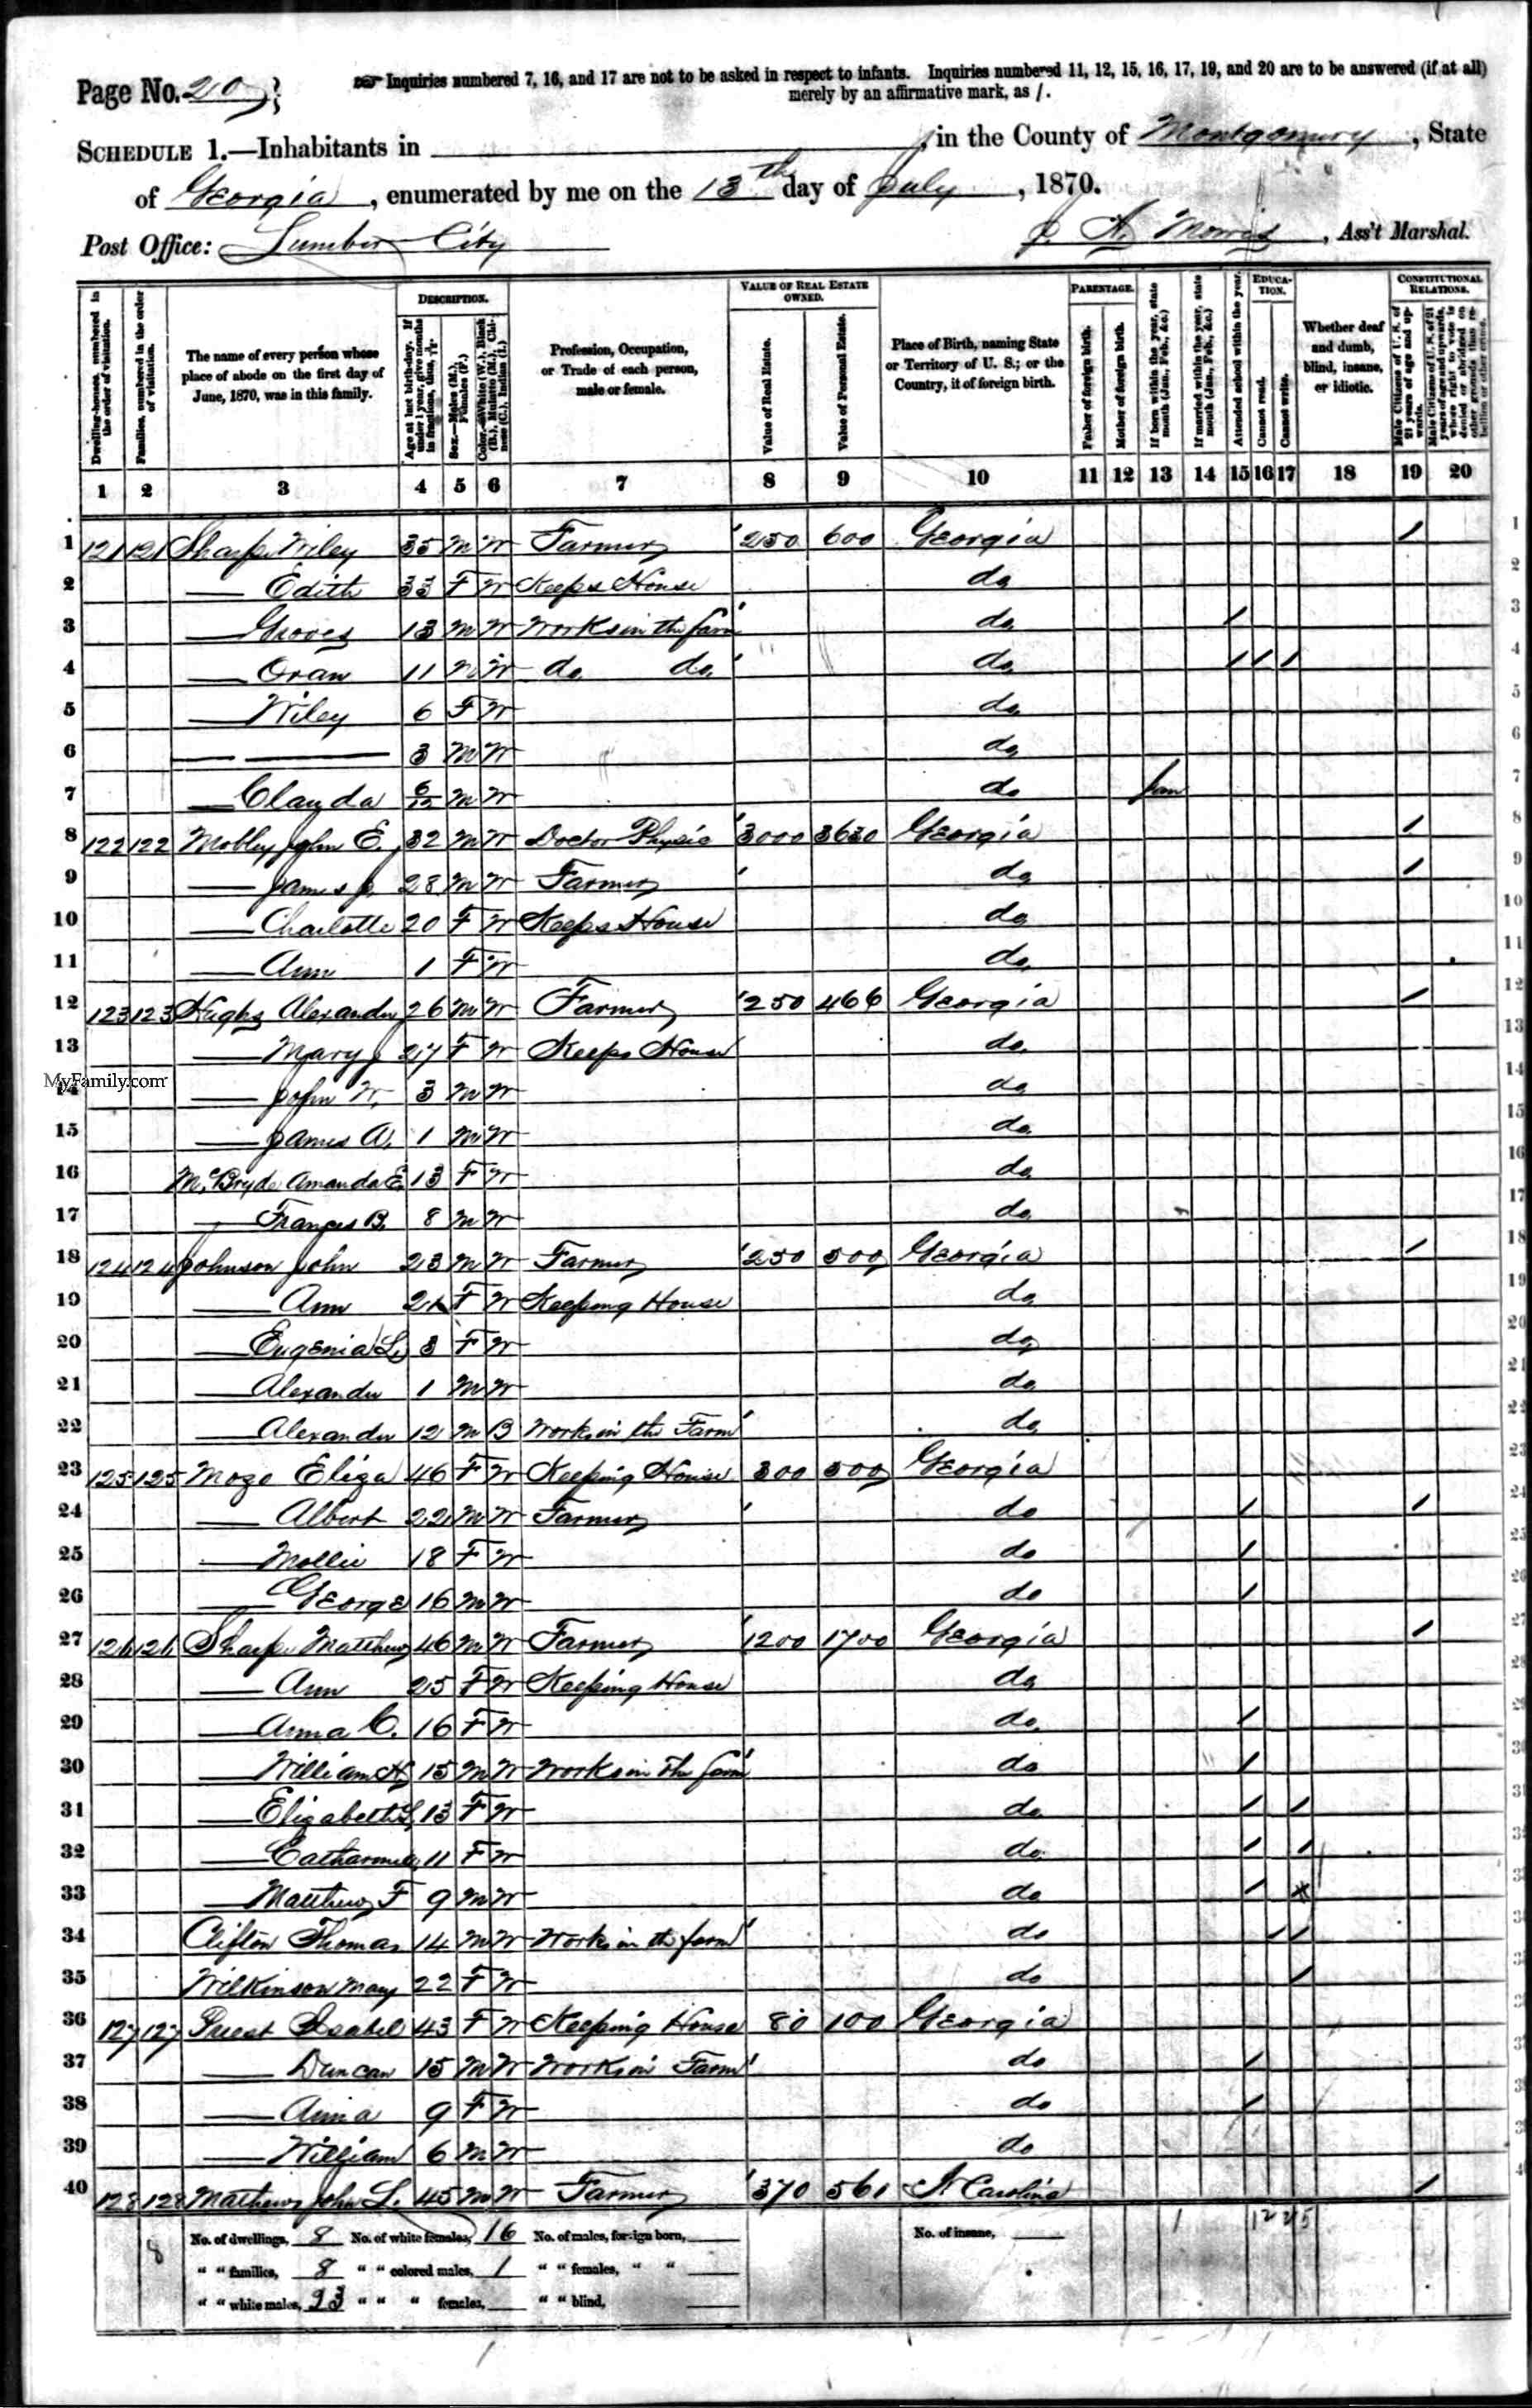 Page No. 20
Inquiries numbered 7, 16, and 17 are not to be asked in respect to infants. Inquiries numbered 11, 12, 15, 16, 17, 19, and 20 are to be answered (if at all)
merely by an affirmative mark, as /.
SCHEDULE 1.—Inhabitants in , in the County of Montgomery, State
of Georgia, enumerated by me on the 13th day of July, 1870.
Post Office: Lumber City
J. A. Morris, Ass't Marshal.
Dwelling-houses, numbered in the order of visitation.
Families, numbered in the order of visitation.
The name of every person whose place of abode on the first day of June, 1870, was in this family.
DESCRIPTION.
Age at last birth-day. If under 1 year, give months in fractions, thus,
Sex.—Males (M.), Females (F.)
Color.—White (W.), Black (B.), Mulatto (M.), Chinese (C.), Indian (I.)
Profession, Occupation, or Trade of each person, male or female.
VALUE OF REAL ESTATE OWNED.
Value of Real Estate.
Value of Personal Estate.
Place of Birth, naming State or Territory of U. S.; or the Country, if of foreign birth.
PARENTAGE.
Father of foreign birth.
Mother of foreign birth.
If born within the year, state month (Jan., Feb., &c.)
If married within the year, state month (Jan., Feb., &c.)
Attended school within the year.
EDUCATION.
Cannot read.
Cannot write.
Whether deaf and dumb, blind, insane, or idiotic.
CONSTITUTIONAL RELATIONS.
Male Citizens of U. S. of 21 years of age and upwards.
Male Citizens of U. S. of 21 years of age and upwards, where right to vote is denied or abridged on other grounds than rebellion or other crime.
1 2 3 4 5 6 7 8 9 10 11 12 13 14 15 16 17 18 19 20
1 121 121 Sharpe Wiley 35 M W Farmer 250 600 Georgia / 1
2 — Edith 33 F W Keeps House do 2
3 — Groves 13 M W Works in the farm do / 3
4 — Oran 11 M W do do do / / / 4
5 — Wiley 6 F W do 5
6 — — 3 M W do 6
7 — Clauda 6/12 M W do Jan 7
8 122 122 Mobley John E. 32 M W Doctor Physic 3000 3630 Georgia / 8
9 — James J. 28 M W Farmer do / 9
10 — Charlotte 20 F W Keeps House do 10
11 — Ann 1 F W do 11
12 123 123 Hughs Alexander 26 M W Farmer 250 466 Georgia / 12
13 — Mary J 27 F W Keeps House do 13
MyFamily.com
14 — John W. 3 M W do 14
15 — James A. 1 M W do 15
16 McBryde Amanda E. 13 F W do 16
17 — Frances B. 8 M W do 17
18 124 124 Johnson John 23 M W Farmer 250 500 Georgia / 18
19 — Ann 21 F W Keeping House do 19
20 — Eugenia L. 3 F W do 20
21 — Alexander 1 M W do 21
22 — Alexander 12 M B Works in the Farm do 22
23 125 125 Mozo Eliza 46 F W Keeping House 300 500 Georgia 23
24 — Albert 22 M W Farmer do / / 24
25 — Mollie 18 F W do / 25
26 — George 16 M W do / 26
27 126 126 Sharpe Matthew 46 M W Farmer 1200 1700 Georgia / 27
28 — Ann 25 F W Keeping House do 28
29 — Anna C. 16 F W do / 29
30 — William H 15 M W Works in the farm do / 30
31 — Elizabeth S. 13 F W do / / 31
32 — 11 F W do / /
33 — Matthew F 9 M W do /
34 Clifton Thomas 14 M W Works in the farm do / /
35 Wilkinson Mary 22 F W do /
36 127 127 Priest Isabel 43 F W Keeping House 80 100 Georgia
37 — Duncan 15 M W Works in Farm do /
38 — Anna 9 F W do /
39 — William 6 M W do
40 128 128 Mathews John L. 45 M W Farmer 370 561 N. Carolina /
8 No. of dwellings, 8 No. of white females, 16 No. of males, foreign born, No. of insane, 1 12 2 5
" " families, 8 " " colored males, 1 " " females, " "
" " white males, 23 " " " females, " " blind,